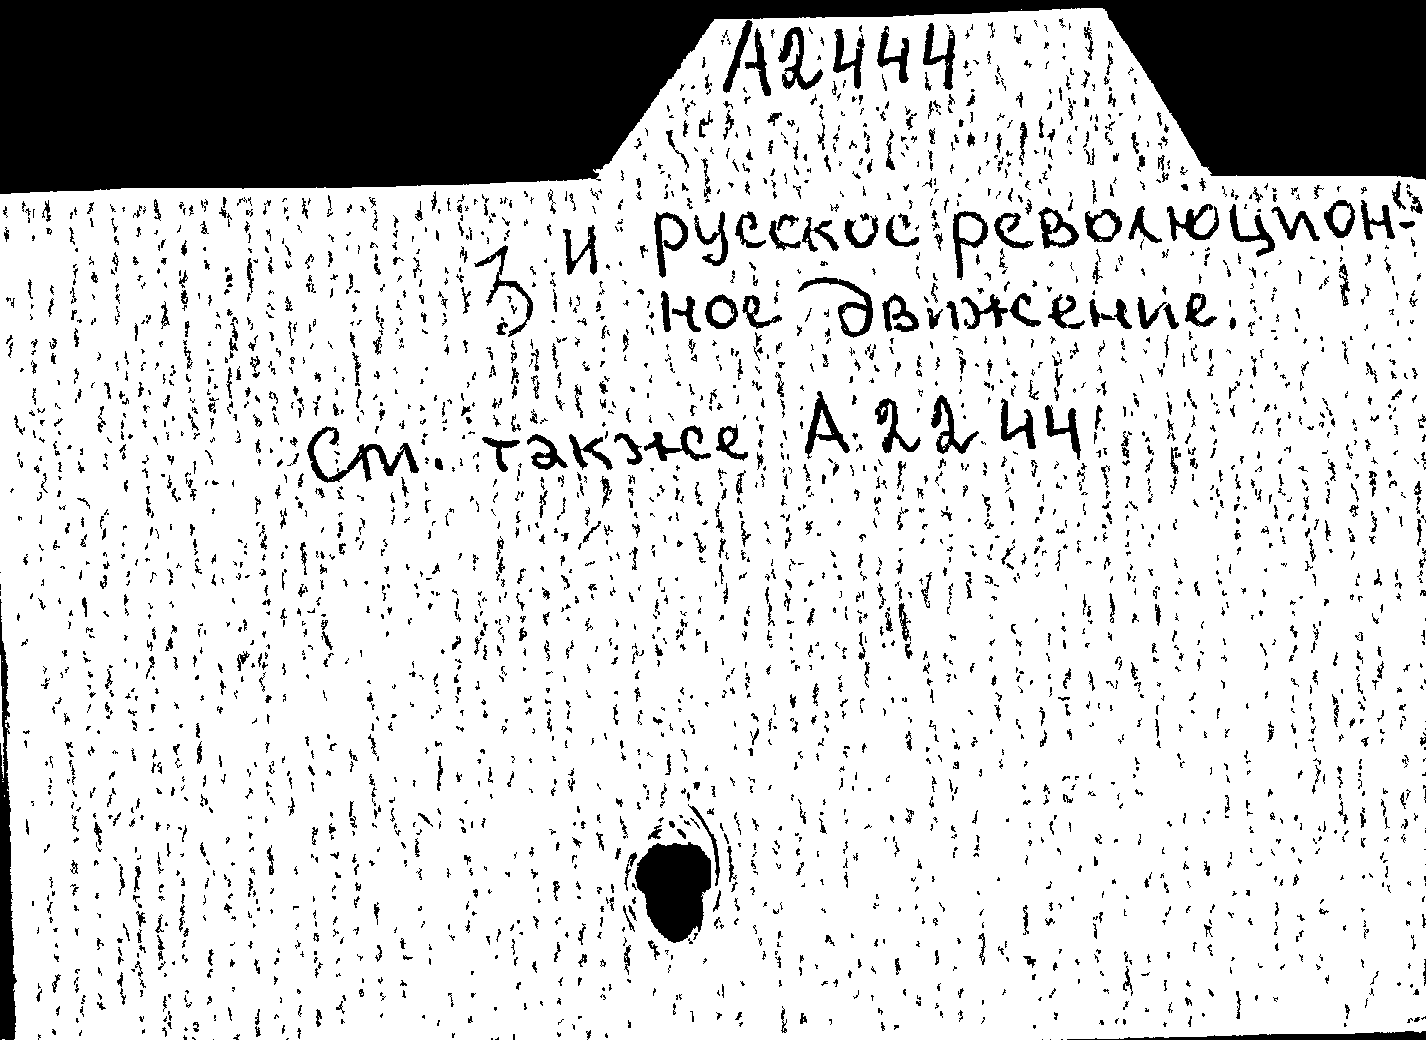 А2444
З и русское революцион-
ное движение.
См. также А 2244